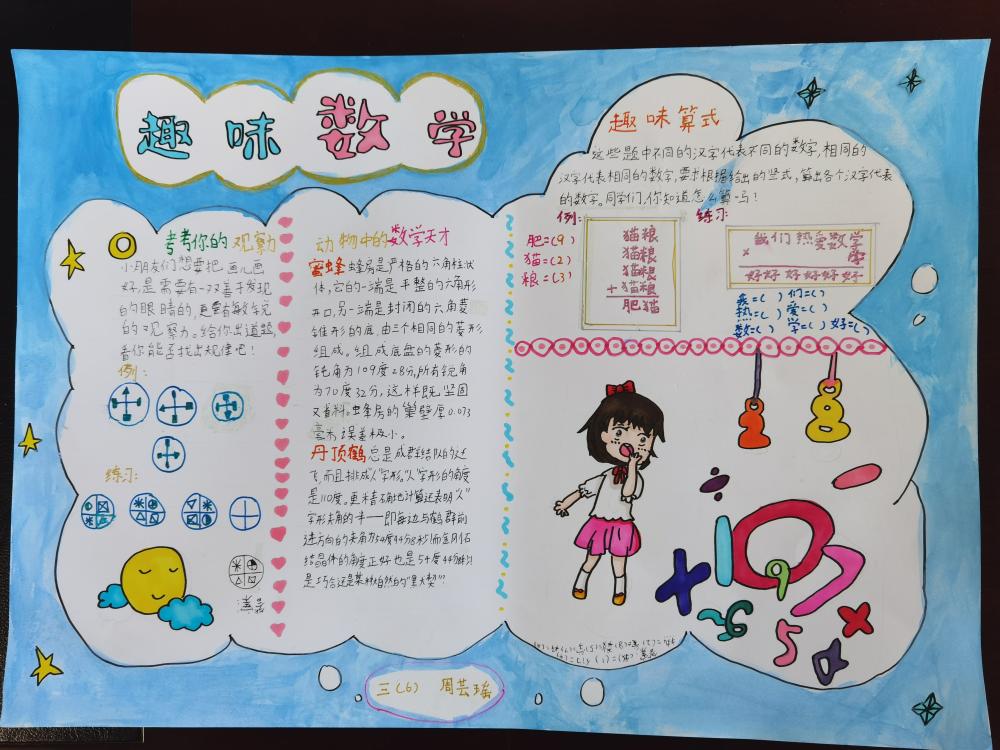 趣味数学
考考你的观察力
小朋友们想要把画儿画
好,是需要有一双善于发现
的眼睛的,更要有数学家
的观察力。给你出道题,
看你能否找出规律吧!
例:
练习:
答案
动物中的数学天才
蜜蜂蜂房是严格的六角柱状
体,它的一端是平整的六角形
开口,另一端是封闭的六角菱
锥形的底,由三个相同的菱形
组成。组成底盘的菱形的
钝角为109度28分,所有锐角
为70度32分,这样既坚固
又省料。蜂房的巢壁厚0.073
毫米,误差极小。
丹顶鹤总是成群结队的
飞,而且排成人字形。"人"字形的角度
是110度。更精确地计算还表明"人"
字形夹角的半——即每边与鹤群前
进方向的夹角为54度44分8秒!而金刚石
结晶体的角度正好也是54度44分8秒!
是巧合还是某种大自然的"默契"?
趣味算式
这些题中不同的汉字代表不同的数字,相同的
汉字代表相同的数字,要求根据给出的竖式,算出各个汉字代表
的数字。同学们,你知道怎么算吗?
例:
肥=(9)
猫=(2)
粮=(3)
猫粮
猫粮
猫粮
+猫粮
肥猫
练习:
我们热爱数学
× 学
好好好好好好
我=( ) 们=( )
热=( ) 爱=( )
数=( ) 学=( ) 好=( )
2
8
9
5
三(6) 周芸瑶